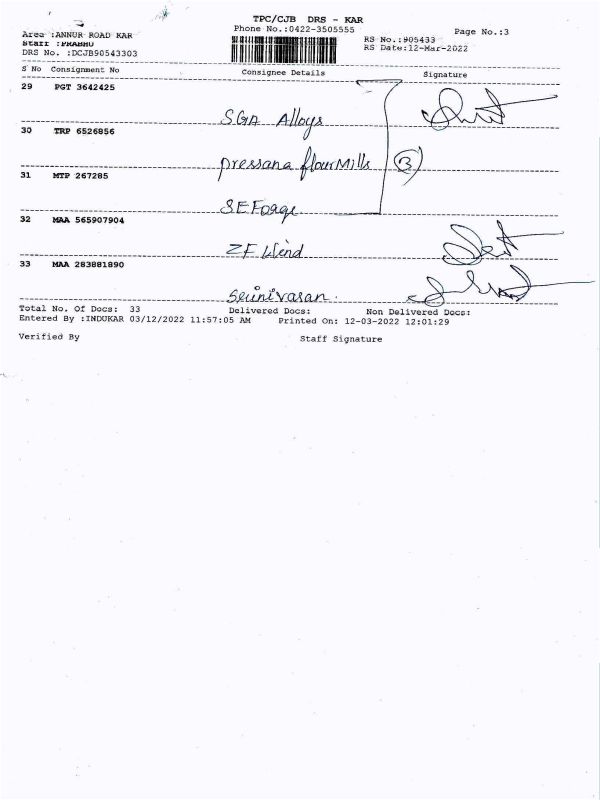 TPC/CJB DRS - KAR
Phone No.:0422-3505555
Page No.:3
Area :ANNUR ROAD KAR
Staff :PRABHU
DRS No. :DCJB90543303
RS No.:905433
RS Date:12-Mar-2022
S No Consignment No Consignee Details Signature
29 PGT 3642425
SGA Alloys
30 TRP 6526856
pressana flour Mills 3
31 MTP 267285
SE Forge
32 MAA 565907904
ZF Wind
33 MAA 283881890
Srinivasan.
Total No. Of Docs: 33 Delivered Docs: Non Delivered Docs:
Entered By :INDUKAR 03/12/2022 11:57:05 AM Printed On: 12-03-2022 12:01:29
Verified By Staff Signature